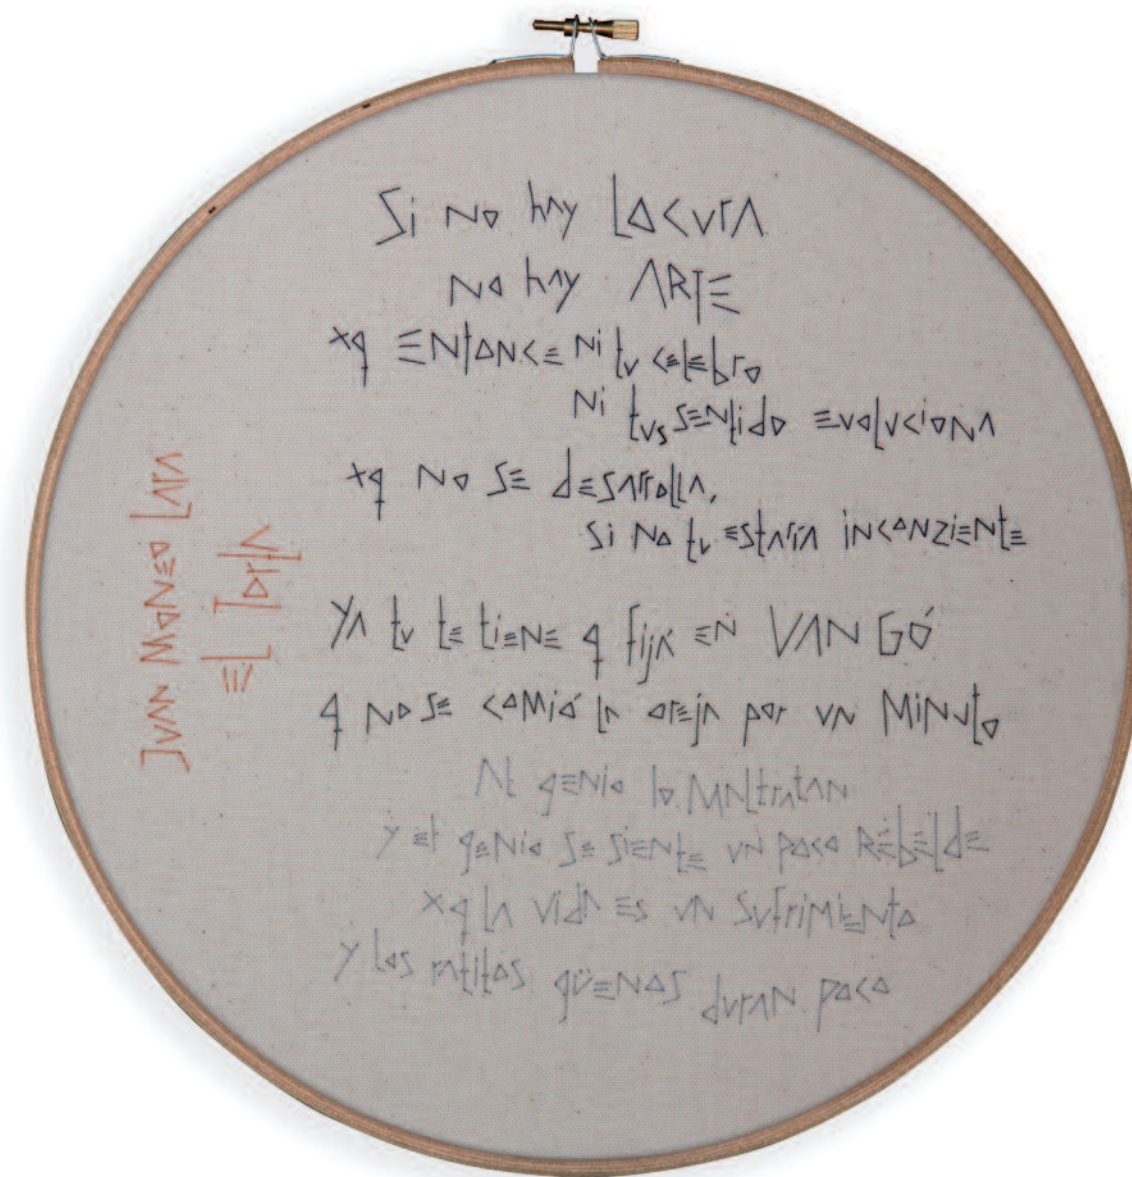 Si No hay LOCURA
No hay ARTE
xq ENTONCE Ni tu CELEbro
Ni tus SENtido EvoluciONA
xq No SE dESArrollA,
Si No tu EStAríA iNCONZiENtE
YA tu tE tiENE q fijá EN VAN GÓ
q No SE comió lA orEjA por uN MiNuto
Al gENio lo MAltrAtAN
y el gENio SE SiENtE uN poco REbElDE
xq lA vidA ES uN SufriMiENto
y los rAtitos güENos durAN poco
JUAN MONEO LARA
EL TortA